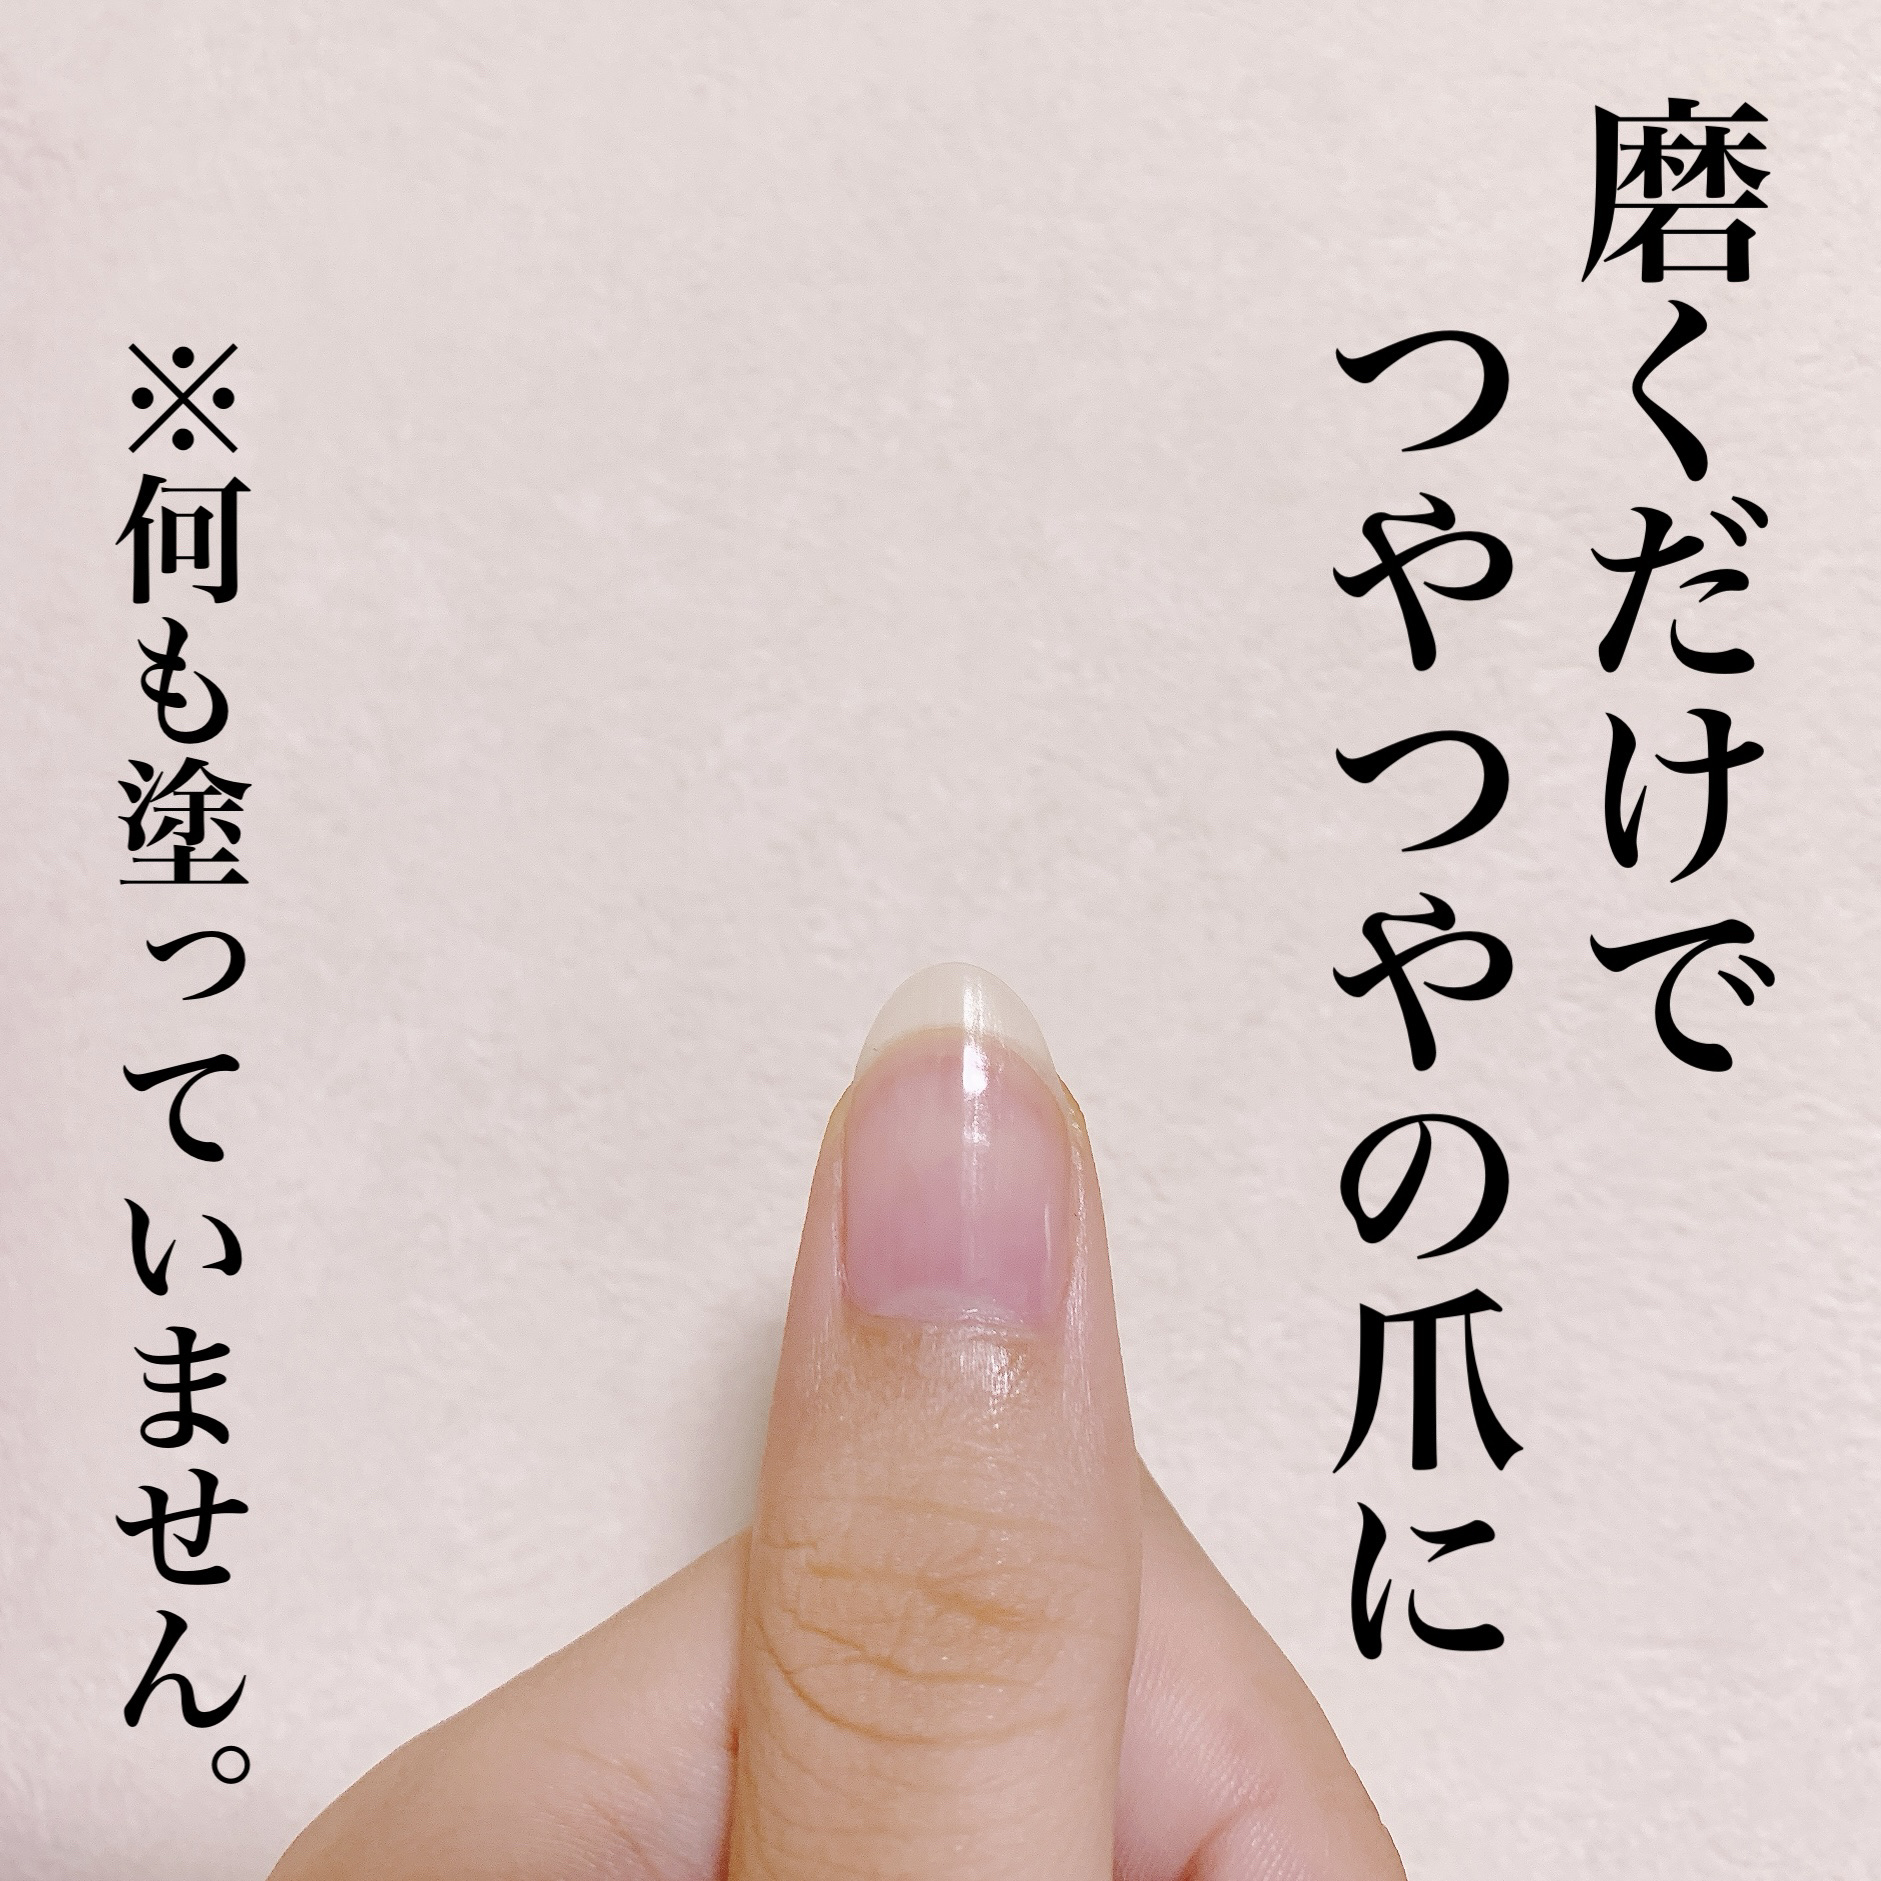 磨くだけで
つやつやの爪に
※何も塗っていません。